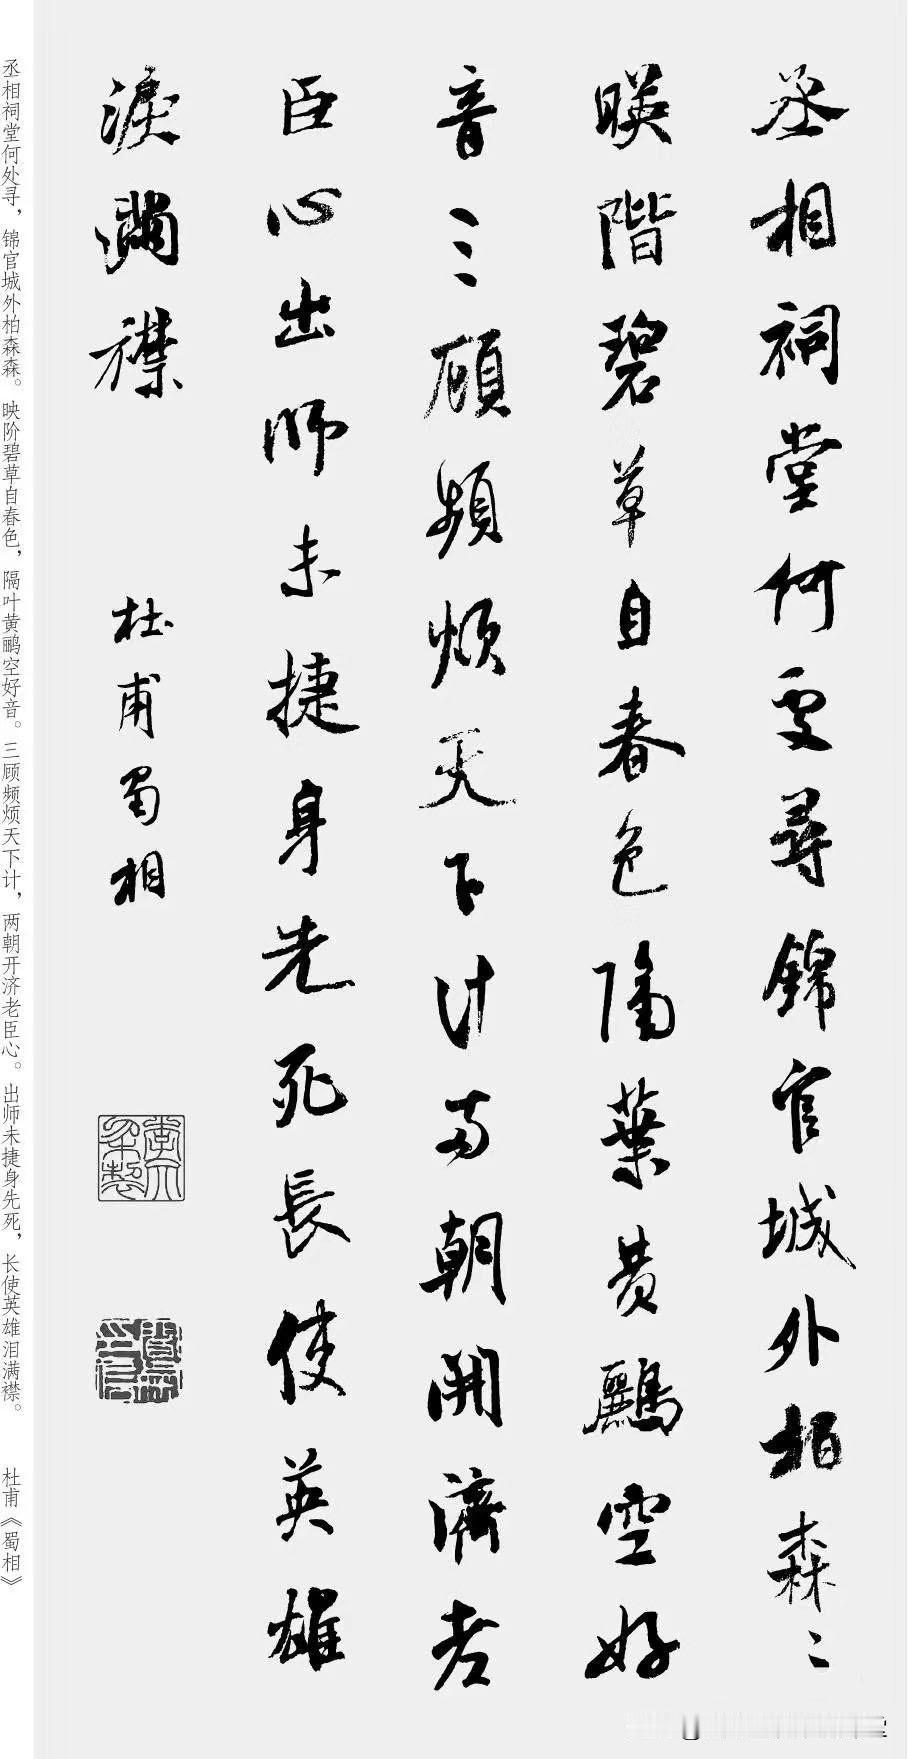 丞相祠堂何處尋錦官城外柏森〻
暎階碧草自春色隔葉黄鸝空好
音三顧頻煩天下計兩朝開濟老
臣心出師未捷身先死長使英雄
淚滿襟
杜甫蜀相
丞相祠堂何处寻，锦官城外柏森森。映阶碧草自春色，隔叶黄鹂空好音。三顾频烦天下计，两朝开济老臣心。出师未捷身先死，长使英雄泪满襟。 杜甫《蜀相》